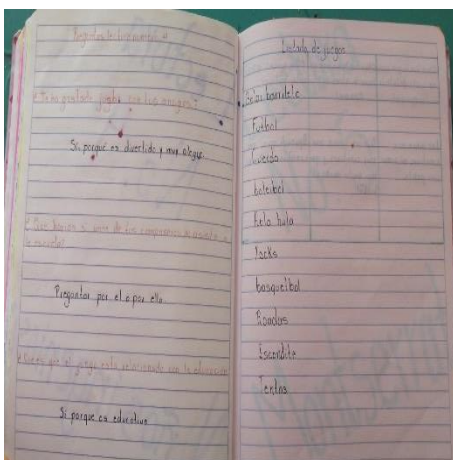 ¿Te ha gustado jugar con tus amigos?
Si porque es divertido y muy alegre.
¿Que harian si uno de tus compañeros
Preguntar por el o por ella
¿Crees que el juego esta relacionado con la educación
Si porque es educativo
Listado de juegos
Futbol
Cuerda
boleibol
hula
Jacks
basqueibol
Rondas
Escondite
Tentas